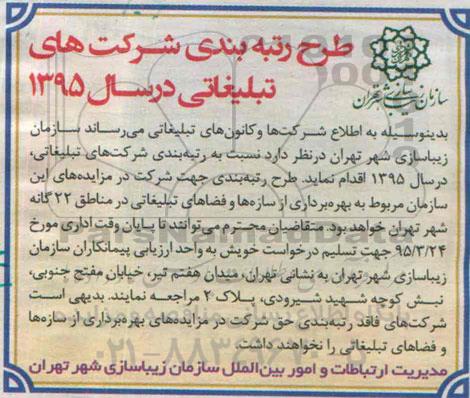 طرح رتبه بندی شرکت های
تبلیغاتی در سال ۱۳۹۵
سازمان زیباسازی شهر تهران
بدینوسیله به اطلاع شرکت‌ها و کانون‌های تبلیغاتی می‌رساند سازمان
زیباسازی شهر تهران درنظر دارد نسبت به رتبه‌بندی شرکت‌های تبلیغاتی،
درسال ۱۳۹۵ اقدام نماید. طرح رتبه‌بندی جهت شرکت در مزایده‌های این
سازمان مربوط به بهره‌برداری از سازه‌ها و فضاهای تبلیغاتی در مناطق ۲۲ گانه
شهر تهران خواهد بود. متقاضیان محترم می‌توانند تا پایان وقت اداری مورخ
۹۵/۳/۲۴ جهت تسلیم درخواست خویش به واحد ارزیابی پیمانکاران سازمان
زیباسازی شهر تهران به نشانی تهران، میدان هفتم تیر، خیابان مفتح جنوبی،
نبش کوچه شهید شیرودی، پلاک ۲ مراجعه نمایند. بدیهی است
شرکت‌های فاقد رتبه‌بندی حق شرکت در مزایده‌های بهره‌برداری از سازه‌ها
و فضاهای تبلیغاتی را نخواهند داشت.
مدیریت ارتباطات و امور بین‌الملل سازمان زیباسازی شهر تهران